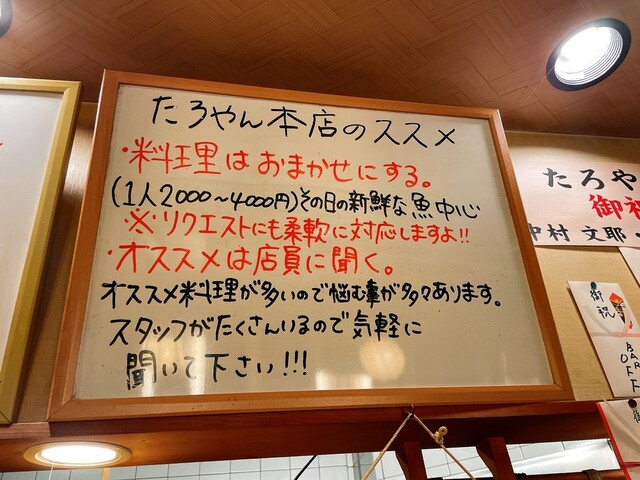 たろやん本店のススメ
・料理はおまかせにする。
(1人2000~4000円)その日の新鮮な魚中心
※リクエストにも柔軟に対応しますよ!!
・オススメは店員に聞く。
オススメ料理が多いので悩む事が多々あります。
スタッフがたくさんいるので気軽に
聞いて下さい!!!
たろや
御祝
中村 文耶・
御祝